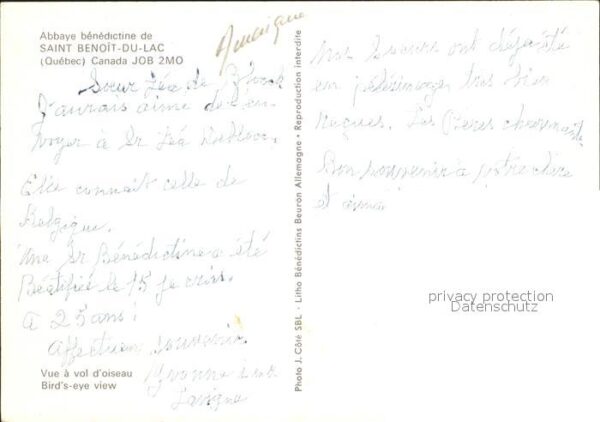 Abbaye bénédictine de
SAINT BENOÎT-DU-LAC
(Québec) Canada JOB 2MO
Soeur Léa de
J'aurais aimé
à Sr Léa
Elle connaît celle de
Belgique.
Une Sr Bénédictine a été
Béatifiée le 15
à 25 ans!
Affectueux souvenir
Yvonne
Lavigne
Vue à vol d'oiseau
Bird's-eye view
Photo J. Côté SBL - Litho Bénédictins Beuron Allemagne - Reproduction interdite
Nos Soeurs ont déjà été
en pèlerinages très bien
reçues. Les Pères charmants
Bon souvenir à votre chère
et
privacy protection
Datenschutz